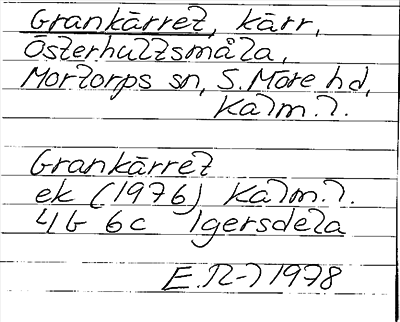 Grankärret, kärr,
Österhultsmåla,
Mortorps sn, S. Möre hd,
Kalm. l.
Grankärret
ek (1976) Kalm. l.
4G 6c Igersdela
E. N-l 1978